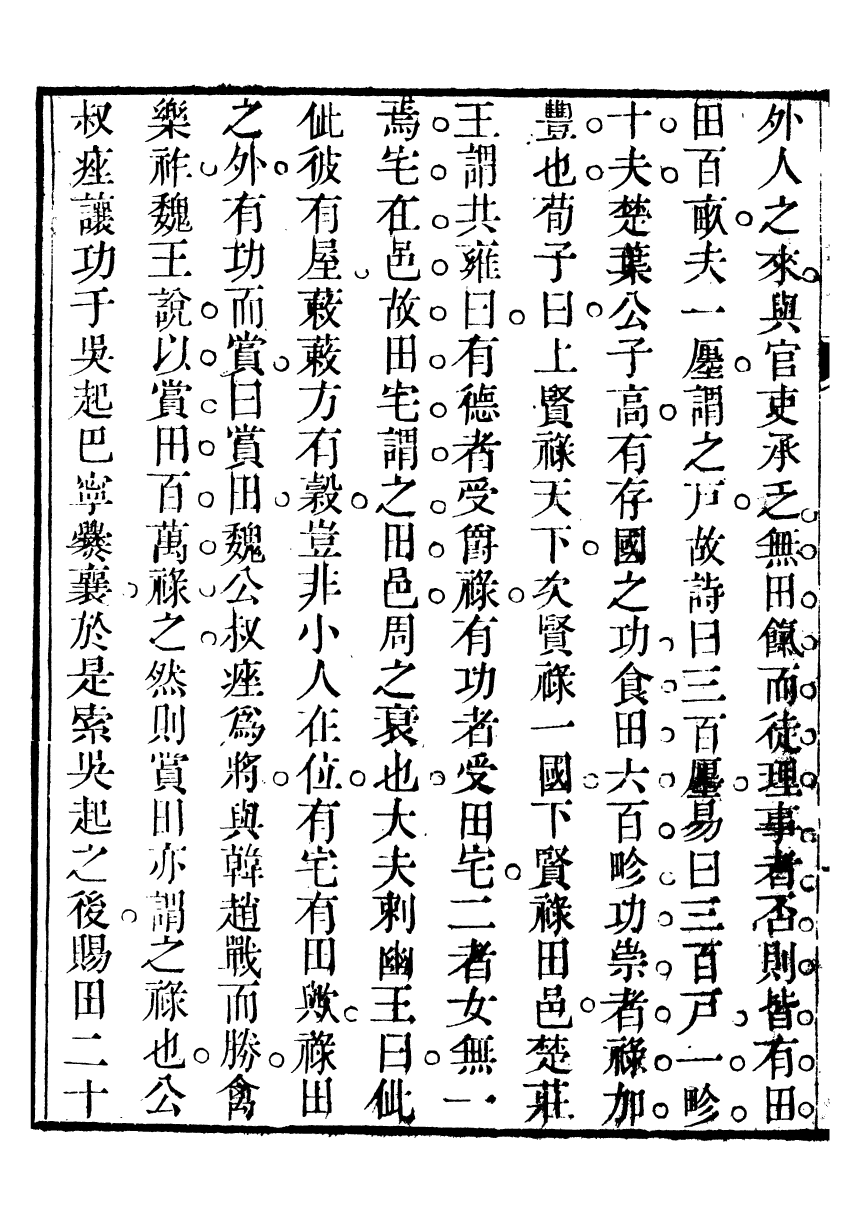 外人之來與官吏承乏無田餼而徒理事者否則皆有田
田百畝夫一廛謂之戸故詩曰三百廛易曰三百戸一畛
十夫楚葉公子高有存國之功食田六百畛功崇者祿加
豐也荀子曰上賢祿天下次賢祿一國下賢祿田邑楚莊
王謂共雍曰有德者受爵祿有功者受田宅二者女無一
焉宅在邑故田宅謂之田邑周之衰也大夫刺幽王曰仳
仳彼有屋蔌蔌方有穀豈非小人在位有宅有田歟祿田
之外有功而賞曰賞田魏公叔痤爲將與韓趙戰而勝禽
樂祚魏王說以賞田百萬祿之然則賞田亦謂之祿也公
叔痤讓功于吳起巴寧爨襄於是索吳起之後賜田二十